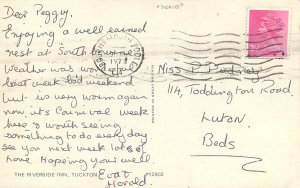 Dear Peggy.
Enjoying a well earned
rest at Southbourne
Weather was
last week bad weekend
but is very warm again
now its Carnival week
here & worth seeing
something to do every day
see you next week lots of
love Hoping your well
Eva &
Harold.
Miss P
114, Toddington Road,
Luton
Beds
THE RIVERSIDE INN, TUCKTON
PT2902